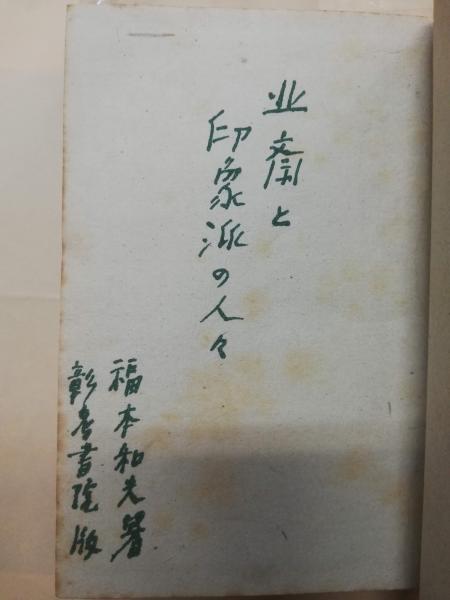 北斎と
印象派の人々
福本和夫著
彰考書院版